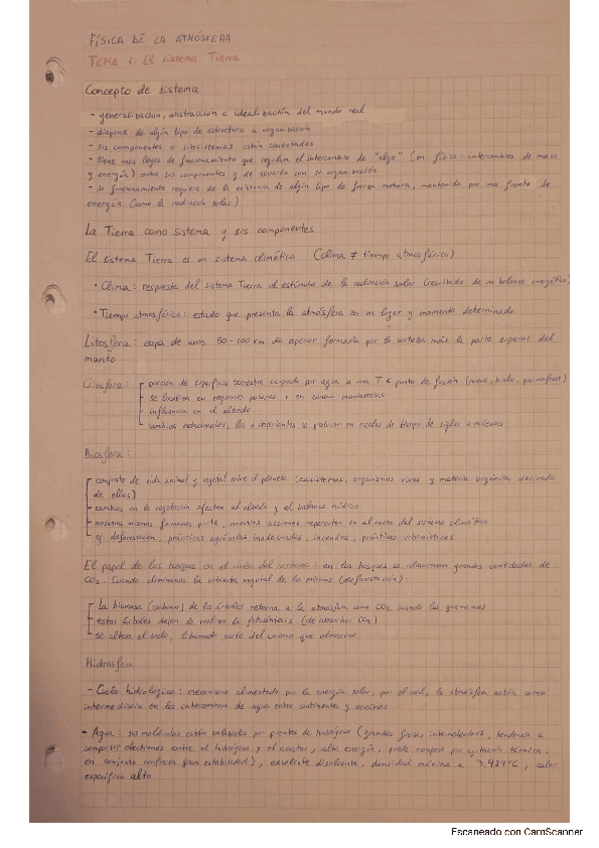 FÍSICA DE LA ATMÓSFERA
TEMA 1: El sistema Tierra
Concepto de sistema
- generalización, abstracción o idealización del mundo real
- dispone de algún tipo de estructura u organización
- sus componentes o subsistemas están conectados
- tiene unas leyes de funcionamiento que regulan el intercambio de "algo" (en física: intercambios de masa
y energía) entre sus componentes y de acuerdo con su organización
- su funcionamiento requiere de la existencia de algún tipo de fuerza motora, mantenida por una fuente de
energía (como la radiación solar).
La Tierra como sistema y sus componentes
El sistema Tierra es un sistema climático (clima ≠ tiempo atmosférico)
· Clima: respuesta del sistema Tierra al estímulo de la radiación solar (resultado de un balance energético)
· Tiempo atmosférico: estado que presenta la atmósfera en un lugar y momento determinado
Litosfera: capa de unos 50-100 km de espesor formada por la corteza más la parte superior del
manto
Criosfera: porción de superficie terrestre ocupada por agua a una T < punto de fusión (nieve, hielo, permafrost)
se localiza en regiones polares + en zonas montañosas
influencia en el albedo
cambios estacionales, los + importantes se producen en escalas de tiempo de siglos a milenios
Biosfera:
conjunto de vida animal y vegetal sobre el planeta (ecosistemas, organismos vivos y materia orgánica derivada
de ellos)
cambios en la vegetación afectan al albedo y al balance hídrico
nosotros mismos formamos parte, nuestras acciones repercuten en el resto del sistema climático
ej: deforestación, prácticas agrícolas inadecuadas, incendios, prácticas urbanísticas
El papel de los bosques en el ciclo del carbono: en los bosques se almacenan grandes cantidades de
CO2. Cuando eliminamos la cubierta vegetal de los mismos (deforestación):
La biomasa (carbono) de los árboles retorna a la atmósfera como CO2 cuando los quemamos
estos árboles dejan de realizar la fotosíntesis (de absorber CO2)
se altera el suelo, liberando parte del carbono que almacena
Hidrosfera
- Ciclo hidrológico: mecanismo alimentado por la energía solar, por el cual, la atmósfera actúa como
intermediaria en los intercambios de agua entre continente y océanos
- Agua: sus moléculas están enlazadas por puentes de hidrógeno (grandes fuerzas intermoleculares, tendencia a
compartir electrones entre el hidrógeno y el aceptor, alta energía, puede romperse por agitación térmica,
en conjunto confieren gran estabilidad), excelente disolvente, densidad máxima a 3.984ºC, calor
específico alto
Escaneado con CamScanner